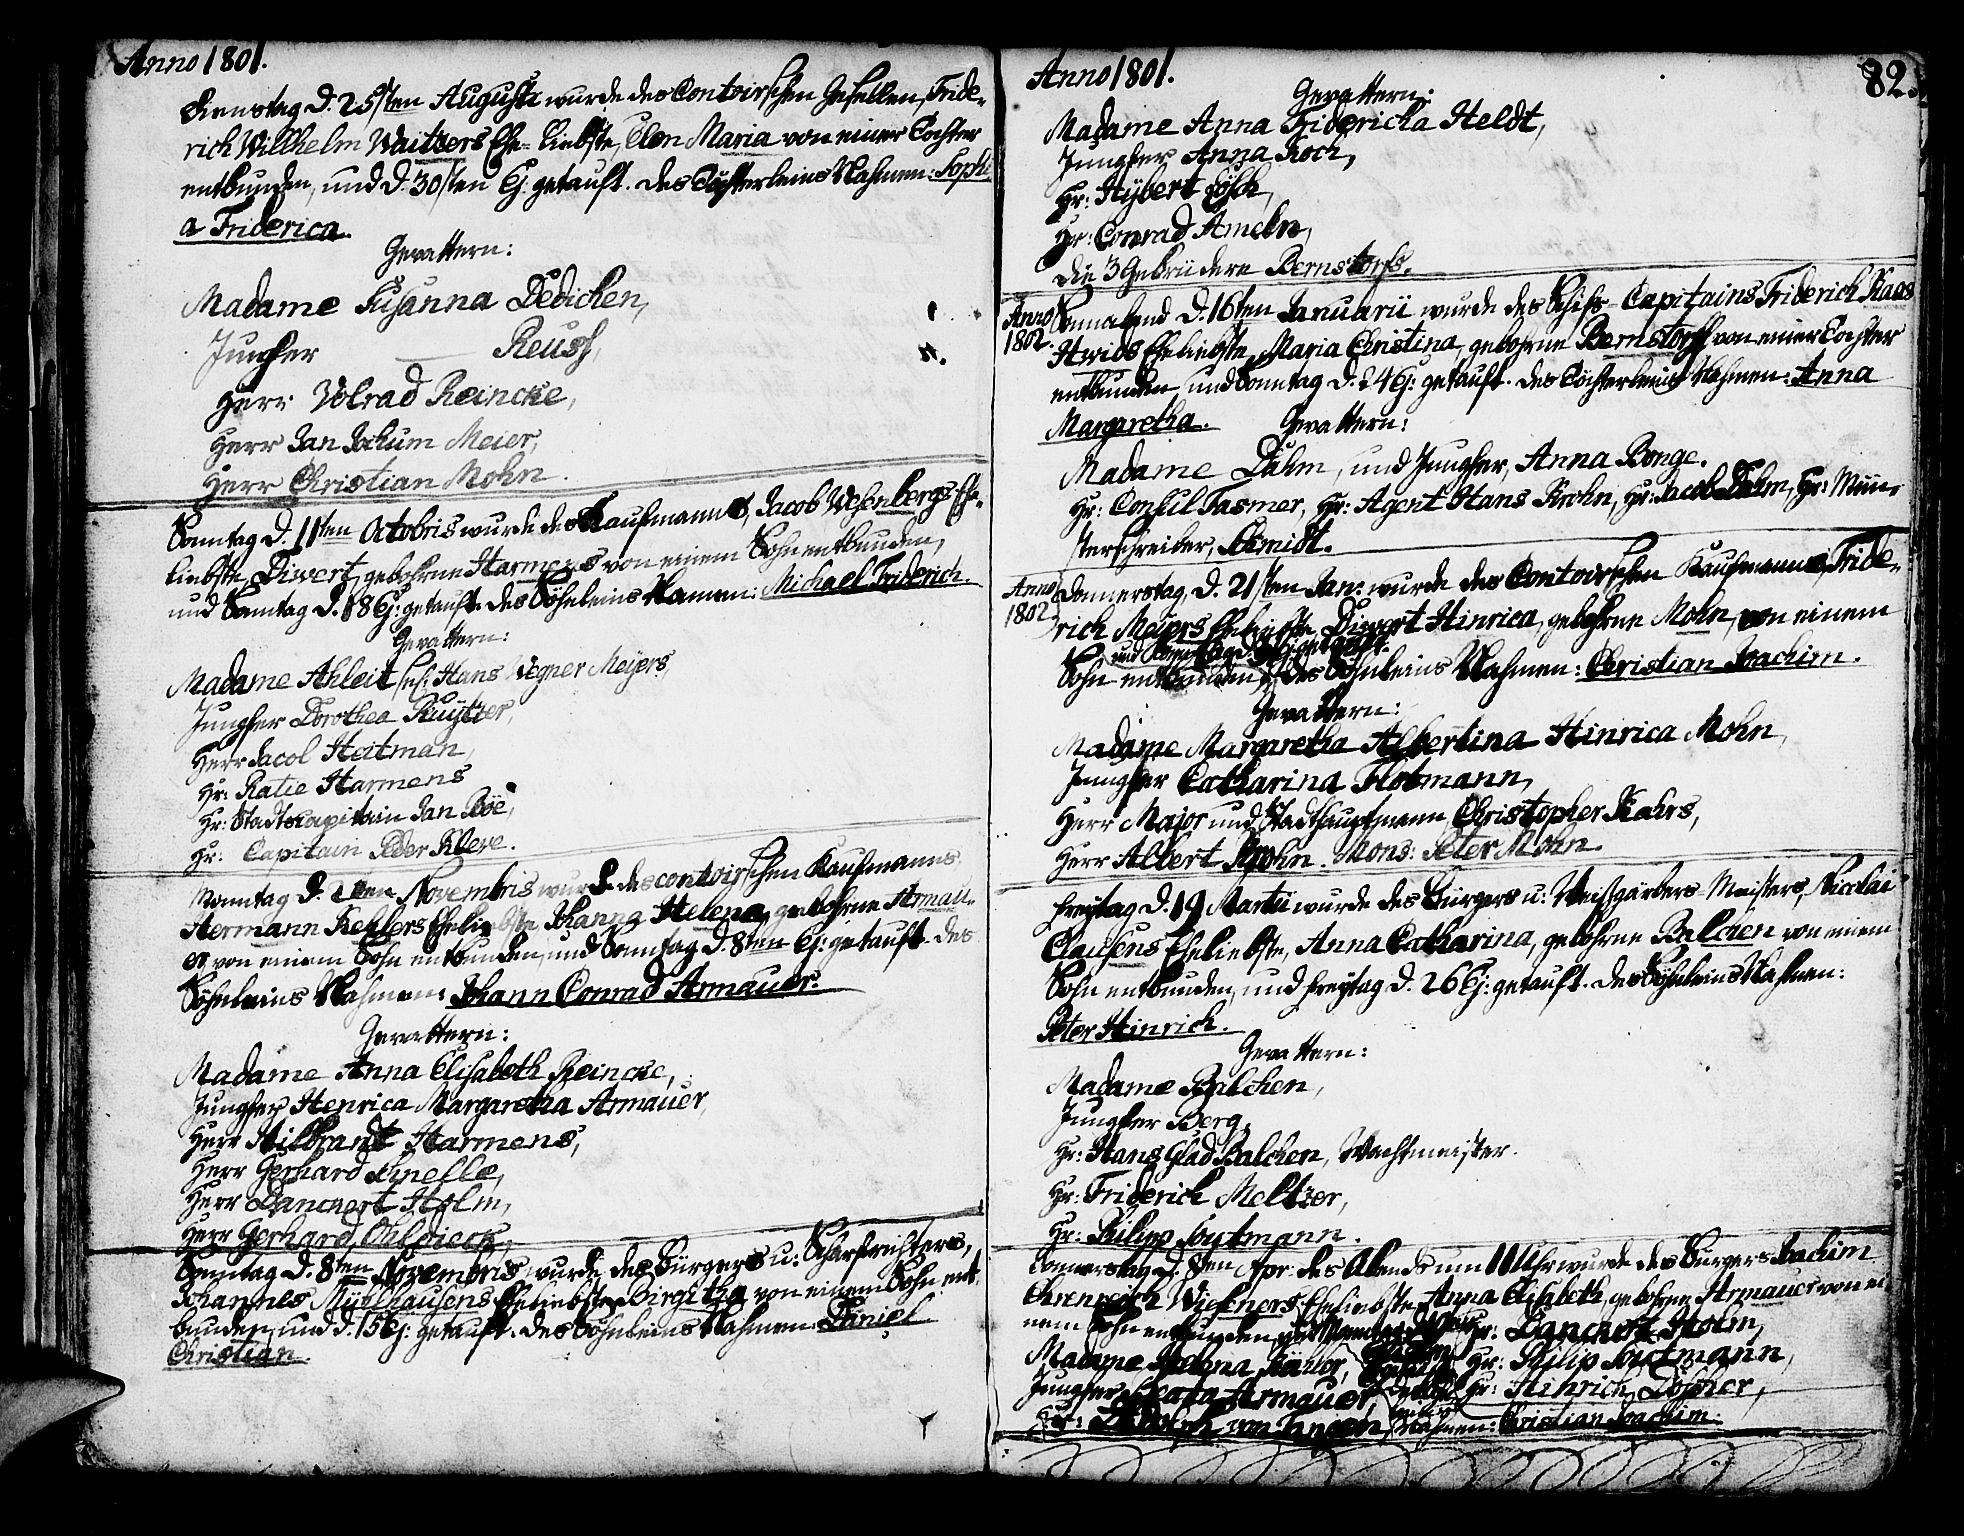 Anno 1801.
Dienstag d. 25sten Augusti wurde des Contoirschen Gesellen, Fride-
rich Willhelm Waitzers Ehe-liebste, Elen Maria von einer Tochter
entbunden, und d. 30sten Ej. getauft. des Töchterleins Nahmen: Sophi-
a Friderica.
Gevattern:
Madame Susanna Dedichen,
Jungfer — Reuss,
Herr Volrad Reincke,
Herr Jan Jochum Meier,
Herr Christian Mohn.
Sonntag d. 11ten Octobris wurde des Kaufmanns, Jacob Wesenbergs Ehe-
liebste, Diwert, gebohrne Harmens von einem Sohn entbunden,
und Sonntag d. 18 Ej: getauft. des Söhnleins Namen: Michael Friderich.
Gevattern:
Madame Ahleit Hans Wegner Meyers,
Jungfer Dorothea Kuytzer,
Herr Jacob Heitman,
Hr: Ratie Harmens
Hr: Stadtskapitain Jan Böe,
Hr: Capitain Peder Kleve.
Monntag d. 2ten Novembris wurde des contoirschen Kaufmanns
Hermann Kehlers Eheliebste Johanna Helena, gebohrne Armau-
er von einem Sohn entbunden, und Sonntag d. 8ten Ej: getauft. des
Söhnleins Nahmen: Johann Conrad Armauer.
Gevattern:
Madame Anna Elisabeth Reincke,
Jungfer Henrica Margaretha Armauer,
Herr Hilbrandt Harmens,
Herr Gerhard Schnelle,
Herr Danckert Holm,
Herr Gerhard Ohldieck,
Sonntag d. 8ten Novembris, wurde des Bürgers u: Scharfrichters,
Johannes Mühlhausens Eheliebste Birgitha von einem Sohn ent-
bunden, und d. 15 Ej: getauft. des Söhnleins Nahmen: Daniel
Christian.
Anno 1801.
82.
Gevattern:
Madame Anna Fridericha Heldt,
Jungfer Anna Koch,
Hr: Hybert Lösch,
Hr: Conrad Ameln,
die 3 Gebrüdere Bernstorfs.
Anno 1802.
Sonnabend d. 16ten Januarii wurde des Schifs-Capitains Friderich Kaas
Hwids Eheliebste, Maria Christina, gebohrne Bernstorff von einer Tochter
entbunden, und Sonntag d. 24 Ej: getauft. des Töchterleins Nahmen: Anna
Margaretha. Gevattern:
Madame Dahm, und Jungfer, Anna Bonge.
Hr: Consul Fasmer, Hr: Agent Hans Krohn, Hr: Jacob Dahm, Hr: Mün-
sterschreiber, Schmidt.
Anno 1802
Donnerstag, d. 21sten Jan: wurde des Contoirschen Kaufmanns, Fride-
rich Meiers Eheliebste, Diwert Hinrica, gebohrne Mohn, von einem
Sohn entbunden, des Söhnleins Nahmen: Christian Joachim.
Gevattern:
Madame Margaretha Albertina Hinrica Mohn,
Jungfer Catharina Flotmann,
Herr Major und Stadthauptmann Christopher Kahrs,
Herr Albert Krohn. Mons: Peter Mohn.
Freytag d. 19 Martii wurde des Bürgers u: Weissgärbers-Meisters, Nicolai
Clausens Eheliebste, Anna Catharina, gebohrne Balchen von einem
Sohn entbunden, und freytag d. 26 Ej: getauft. des Söhnleins Nahmen:
Peter Hinrich.
Gevattern:
Madame Balchen,
Jungfer Berg,
Hr: Hans Glad Balchen, Wachtmeister.
Hr: Friderich Meltzer,
Hr: Philip Soutmann.
Donnerstag d. 8ten Apr: des Abends um 11 Uhr wurde des Bürgers Joachim
Ehrenreich Wieseners Eheliebste, Anna Elisabeth, gebohrne Armauer von ei-
nem Sohn entbunden Hr: Danckert Holm,
Madame Helena Hr: Philip Soutmann,
Jungfer Armauer, Hr: Hinrich Döscher,
Hr: von Tangen, Nahmen: Christian Joachim.